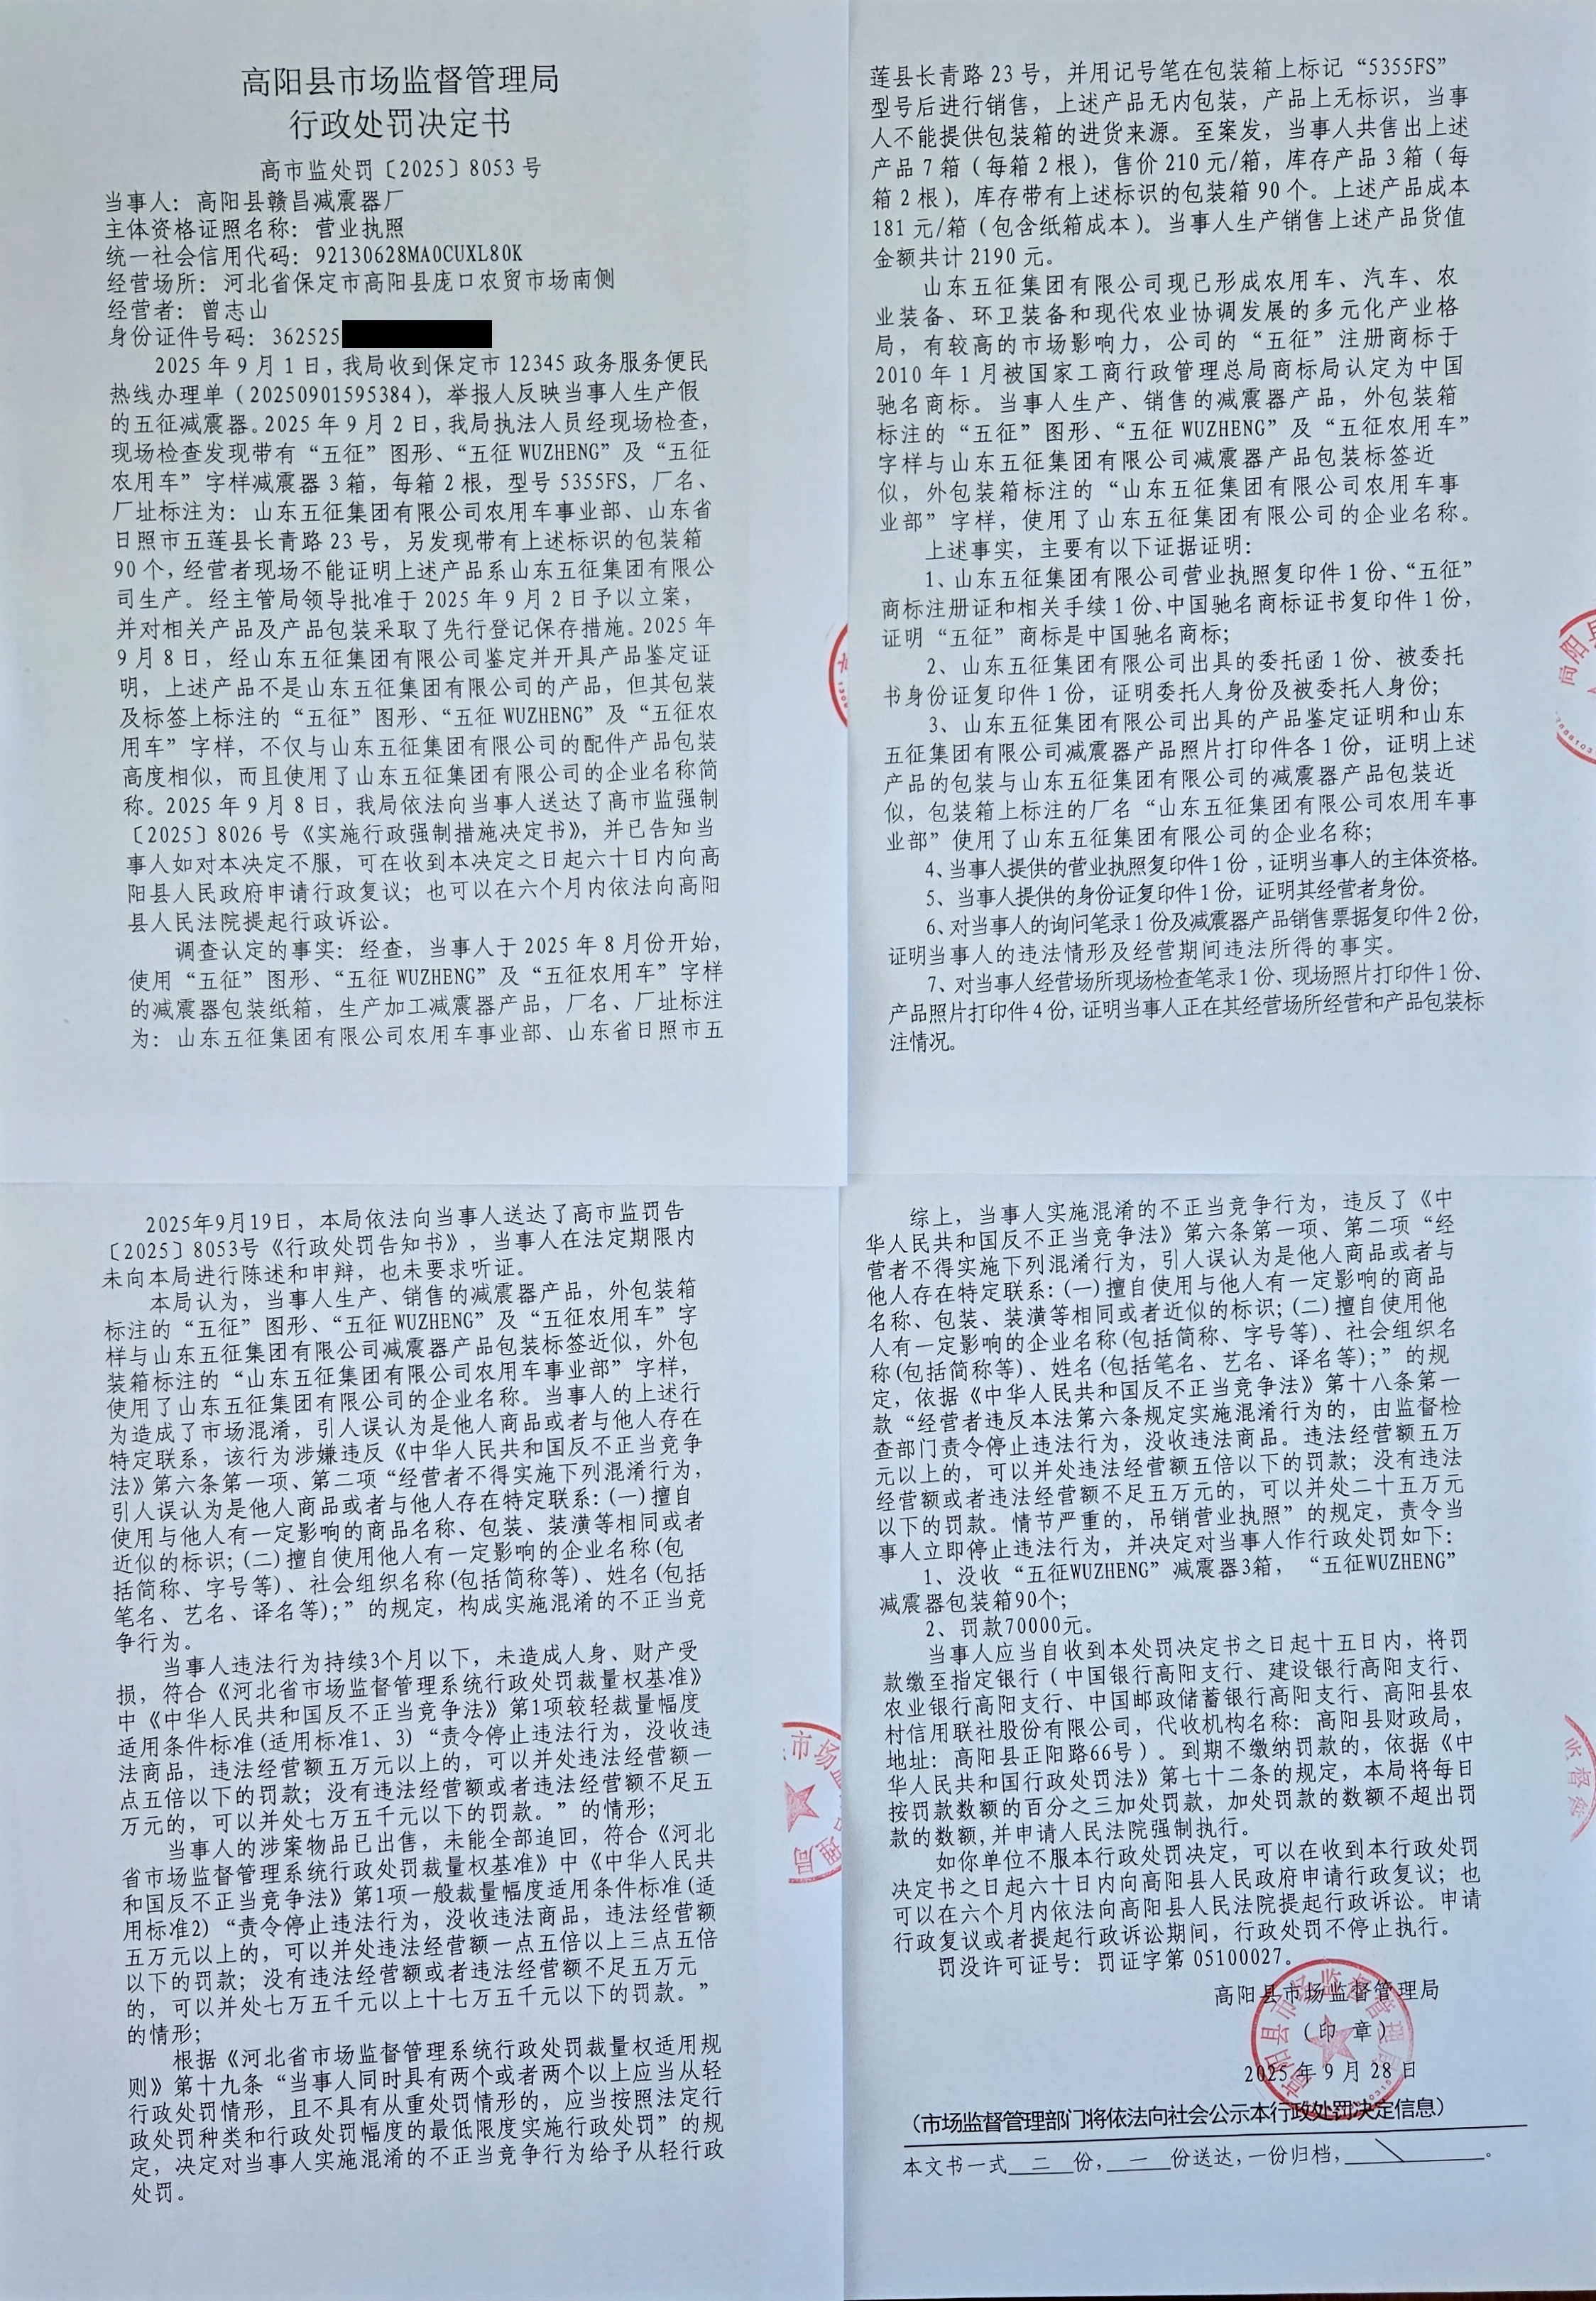 高阳县市场监督管理局
行政处罚决定书
高市监处罚〔2025〕8053 号
当事人：高阳县赣昌减震器厂
主体资格证照名称：营业执照
统一社会信用代码：92130628MA0CUXL80K
经营场所：河北省保定市高阳县庞口农贸市场南侧
经营者：曾志山
身份证件号码：362525
2025 年 9 月 1 日，我局收到保定市 12345 政务服务便民
热线办理单（20250901595384），举报人反映当事人生产假
的五征减震器。2025 年 9 月 2 日，我局执法人员经现场检查，
现场检查发现带有“五征”图形、“五征 WUZHENG”及“五征
农用车”字样减震器 3 箱，每箱 2 根，型号 5355FS，厂名、
厂址标注为：山东五征集团有限公司农用车事业部、山东省
日照市五莲县长青路 23 号，另发现带有上述标识的包装箱
90 个，经营者现场不能证明上述产品系山东五征集团有限公
司生产。经主管局领导批准于 2025 年 9 月 2 日予以立案，
并对相关产品及产品包装采取了先行登记保存措施。2025 年
9 月 8 日，经山东五征集团有限公司鉴定并开具产品鉴定证
明，上述产品不是山东五征集团有限公司的产品，但其包装
及标签上标注的“五征”图形、“五征 WUZHENG”及“五征农
用车”字样，不仅与山东五征集团有限公司的配件产品包装
高度相似，而且使用了山东五征集团有限公司的企业名称简
称。2025 年 9 月 8 日，我局依法向当事人送达了高市监强制
〔2025〕8026 号《实施行政强制措施决定书》，并已告知当
事人如对本决定不服，可在收到本决定之日起六十日内向高
阳县人民政府申请行政复议；也可以在六个月内依法向高阳
县人民法院提起行政诉讼。
调查认定的事实：经查，当事人于 2025 年 8 月份开始，
使用“五征”图形、“五征 WUZHENG”及“五征农用车”字样
的减震器包装纸箱，生产加工减震器产品，厂名、厂址标注
为：山东五征集团有限公司农用车事业部、山东省日照市五
莲县长青路 23 号，并用记号笔在包装箱上标记“5355FS”
型号后进行销售，上述产品无内包装，产品上无标识，当事
人不能提供包装箱的进货来源。至案发，当事人共售出上述
产品 7 箱（每箱 2 根），售价 210 元/箱，库存产品 3 箱（每
箱 2 根），库存带有上述标识的包装箱 90 个。上述产品成本
181 元/箱（包含纸箱成本）。当事人生产销售上述产品货值
金额共计 2190 元。
山东五征集团有限公司现已形成农用车、汽车、农
业装备、环卫装备和现代农业协调发展的多元化产业格
局，有较高的市场影响力，公司的“五征”注册商标于
2010 年 1 月被国家工商行政管理总局商标局认定为中国
驰名商标。当事人生产、销售的减震器产品，外包装箱
标注的“五征”图形、“五征 WUZHENG”及“五征农用车”
字样与山东五征集团有限公司减震器产品包装标签近
似，外包装箱标注的“山东五征集团有限公司农用车事
业部”字样，使用了山东五征集团有限公司的企业名称。
上述事实，主要有以下证据证明：
1、山东五征集团有限公司营业执照复印件 1 份、“五征”
商标注册证和相关手续 1 份、中国驰名商标证书复印件 1 份，
证明“五征”商标是中国驰名商标；
2、山东五征集团有限公司出具的委托函 1 份、被委托
书身份证复印件 1 份，证明委托人身份及被委托人身份；
3、山东五征集团有限公司出具的产品鉴定证明和山东
五征集团有限公司减震器产品照片打印件各 1 份，证明上述
产品的包装与山东五征集团有限公司的减震器产品包装近
似，包装箱上标注的厂名“山东五征集团有限公司农用车事
业部”使用了山东五征集团有限公司的企业名称；
4、当事人提供的营业执照复印件 1 份，证明当事人的主体资格。
5、当事人提供的身份证复印件 1 份，证明其经营者身份。
6、对当事人的询问笔录 1 份及减震器产品销售票据复印件 2 份，
证明当事人的违法情形及经营期间违法所得的事实。
7、对当事人经营场所现场检查笔录 1 份、现场照片打印件 1 份、
产品照片打印件 4 份，证明当事人正在其经营场所经营和产品包装标
注情况。
2025年9月19日，本局依法向当事人送达了高市监罚告
〔2025〕8053号《行政处罚告知书》，当事人在法定期限内
未向本局进行陈述和申辩，也未要求听证。
本局认为，当事人生产、销售的减震器产品，外包装箱
标注的“五征”图形、“五征 WUZHENG”及“五征农用车”字
样与山东五征集团有限公司减震器产品包装标签近似，外包
装箱标注的“山东五征集团有限公司农用车事业部”字样，
使用了山东五征集团有限公司的企业名称。当事人的上述行
为造成了市场混淆，引人误认为是他人商品或者与他人存在
特定联系，该行为涉嫌违反《中华人民共和国反不正当竞争
法》第六条第一项、第二项“经营者不得实施下列混淆行为，
引人误认为是他人商品或者与他人存在特定联系：(一)擅自
使用与他人有一定影响的商品名称、包装、装潢等相同或者
近似的标识；(二)擅自使用他人有一定影响的企业名称(包
括简称、字号等)、社会组织名称(包括简称等)、姓名(包括
笔名、艺名、译名等)；”的规定，构成实施混淆的不正当竞
争行为。
当事人违法行为持续3个月以下，未造成人身、财产受
损，符合《河北省市场监督管理系统行政处罚裁量权基准》
中《中华人民共和国反不正当竞争法》第1项较轻裁量幅度
适用条件标准(适用标准1、3)“责令停止违法行为，没收违
法商品，违法经营额五万元以上的，可以并处违法经营额一
点五倍以下的罚款；没有违法经营额或者违法经营额不足五
万元的，可以并处七万五千元以下的罚款。”的情形；
当事人的涉案物品已出售，未能全部追回，符合《河北
省市场监督管理系统行政处罚裁量权基准》中《中华人民共
和国反不正当竞争法》第1项一般裁量幅度适用条件标准(适
用标准2)“责令停止违法行为，没收违法商品，违法经营额
五万元以上的，可以并处违法经营额一点五倍以上三点五倍
以下的罚款；没有违法经营额或者违法经营额不足五万元
的，可以并处七万五千元以上十七万五千元以下的罚款。”
的情形；
根据《河北省市场监督管理系统行政处罚裁量权适用规
则》第十九条“当事人同时具有两个或者两个以上应当从轻
行政处罚情形，且不具有从重处罚情形的，应当按照法定行
政处罚种类和行政处罚幅度的最低限度实施行政处罚”的规
定，决定对当事人实施混淆的不正当竞争行为给予从轻行政
处罚。
综上，当事人实施混淆的不正当竞争行为，违反了《中
华人民共和国反不正当竞争法》第六条第一项、第二项“经
营者不得实施下列混淆行为，引人误认为是他人商品或者与
他人存在特定联系：(一)擅自使用与他人有一定影响的商品
名称、包装、装潢等相同或者近似的标识；(二)擅自使用他
人有一定影响的企业名称(包括简称、字号等)、社会组织名
称(包括简称等)、姓名(包括笔名、艺名、译名等)；”的规
定，依据《中华人民共和国反不正当竞争法》第十八条第一
款“经营者违反本法第六条规定实施混淆行为的，由监督检
查部门责令停止违法行为，没收违法商品。违法经营额五万
元以上的，可以并处违法经营额五倍以下的罚款；没有违法
经营额或者违法经营额不足五万元的，可以并处二十五万元
以下的罚款。情节严重的，吊销营业执照”的规定，责令当
事人立即停止违法行为，并决定对当事人作行政处罚如下：
1、没收“五征WUZHENG”减震器3箱，“五征WUZHENG”
减震器包装箱90个；
2、罚款70000元。
当事人应当自收到本处罚决定书之日起十五日内，将罚
款缴至指定银行（中国银行高阳支行、建设银行高阳支行、
农业银行高阳支行、中国邮政储蓄银行高阳支行、高阳县农
村信用联社股份有限公司，代收机构名称：高阳县财政局，
地址：高阳县正阳路66号）。到期不缴纳罚款的，依据《中
华人民共和国行政处罚法》第七十二条的规定，本局将每日
按罚款数额的百分之三加处罚款，加处罚款的数额不超出罚
款的数额，并申请人民法院强制执行。
如你单位不服本行政处罚决定，可以在收到本行政处罚
决定书之日起六十日内向高阳县人民政府申请行政复议；也
可以在六个月内依法向高阳县人民法院提起行政诉讼。申请
行政复议或者提起行政诉讼期间，行政处罚不停止执行。
罚没许可证号：罚证字第 05100027。
高阳县市场监督管理局
（印 章）
2025 年 9 月 28 日
（市场监督管理部门将依法向社会公示本行政处罚决定信息）
本文书一式 二 份， 一 份送达，一份归档， 。